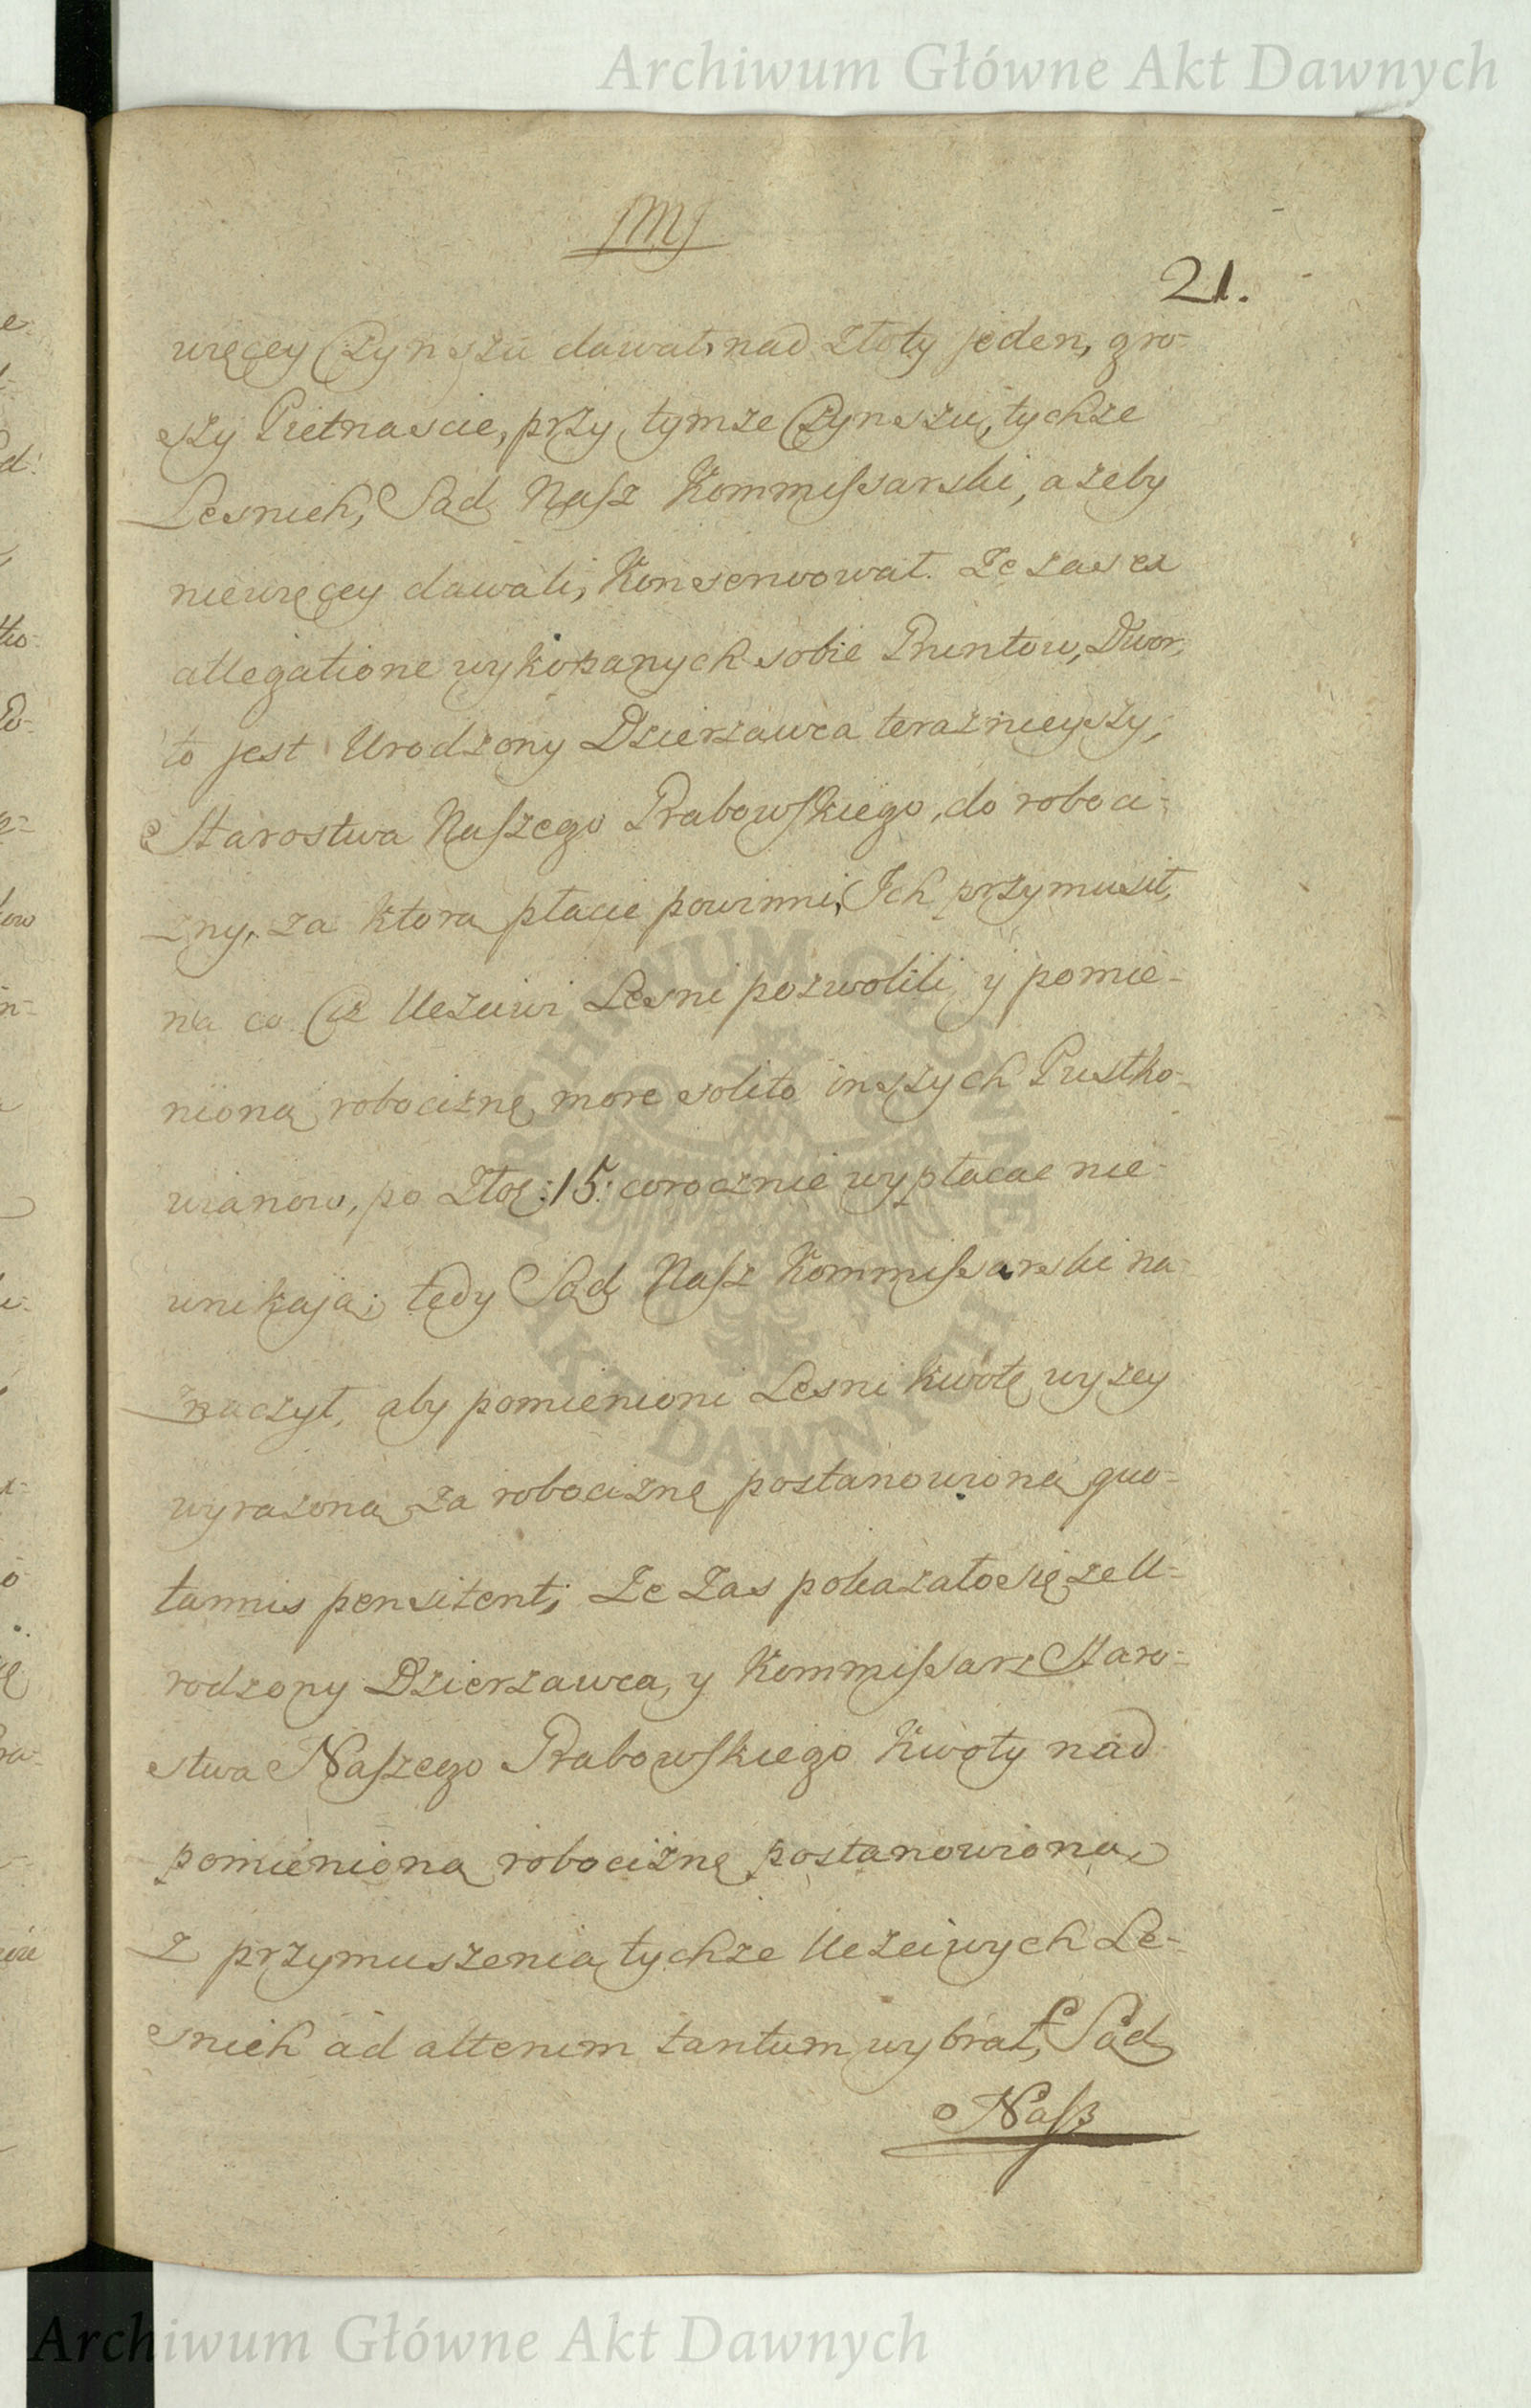 Archiwum Główne Akt Dawnych
21.
więcey Czynszu dawał, nad złoty jeden, gro-
szy Pietnascie, przy tymze Czynszu, tychze
Lesnich, Sąd Nasz Kommissarski, azeby
niewięcey dawali, Konserwował. Ze zas ex
allegatione wykopanych sobie Pruntow, Dwor,
to jest Urodzony Dzierzawca teraznieyszy,
Starostwa Naszego Prabowskiego, do roboci-
zny, za ktorą płacic powinni, Ich przymusił,
na co Ciz Uczciwi Lesni pozwolili, y pomie-
nioną robociznę more solito inszych Pustko-
wianow, po Złoł: 15: corocznie wypłacac nie-
unikaią; tedy Sąd Nasz Kommissarski na-
znaczył, aby pomienioni Lesni kwotę wyzey
wyrazoną za robociznę postanowioną quo-
tannis pensitent; Ze zas pokazało się, ze U-
rodzony Dzierzawca, y Kommissarz Staro-
stwa Naszego Prabowskiego Kwoty nad
pomienioną robociznę postanowioną,
z przymuszenia tychze Uczciwych Le-
snich ad alterum tantum wybrał, Sąd
Nasz
ARCHIWUM GŁÓWNE AKT DAWNYCH
Archiwum Główne Akt Dawnych